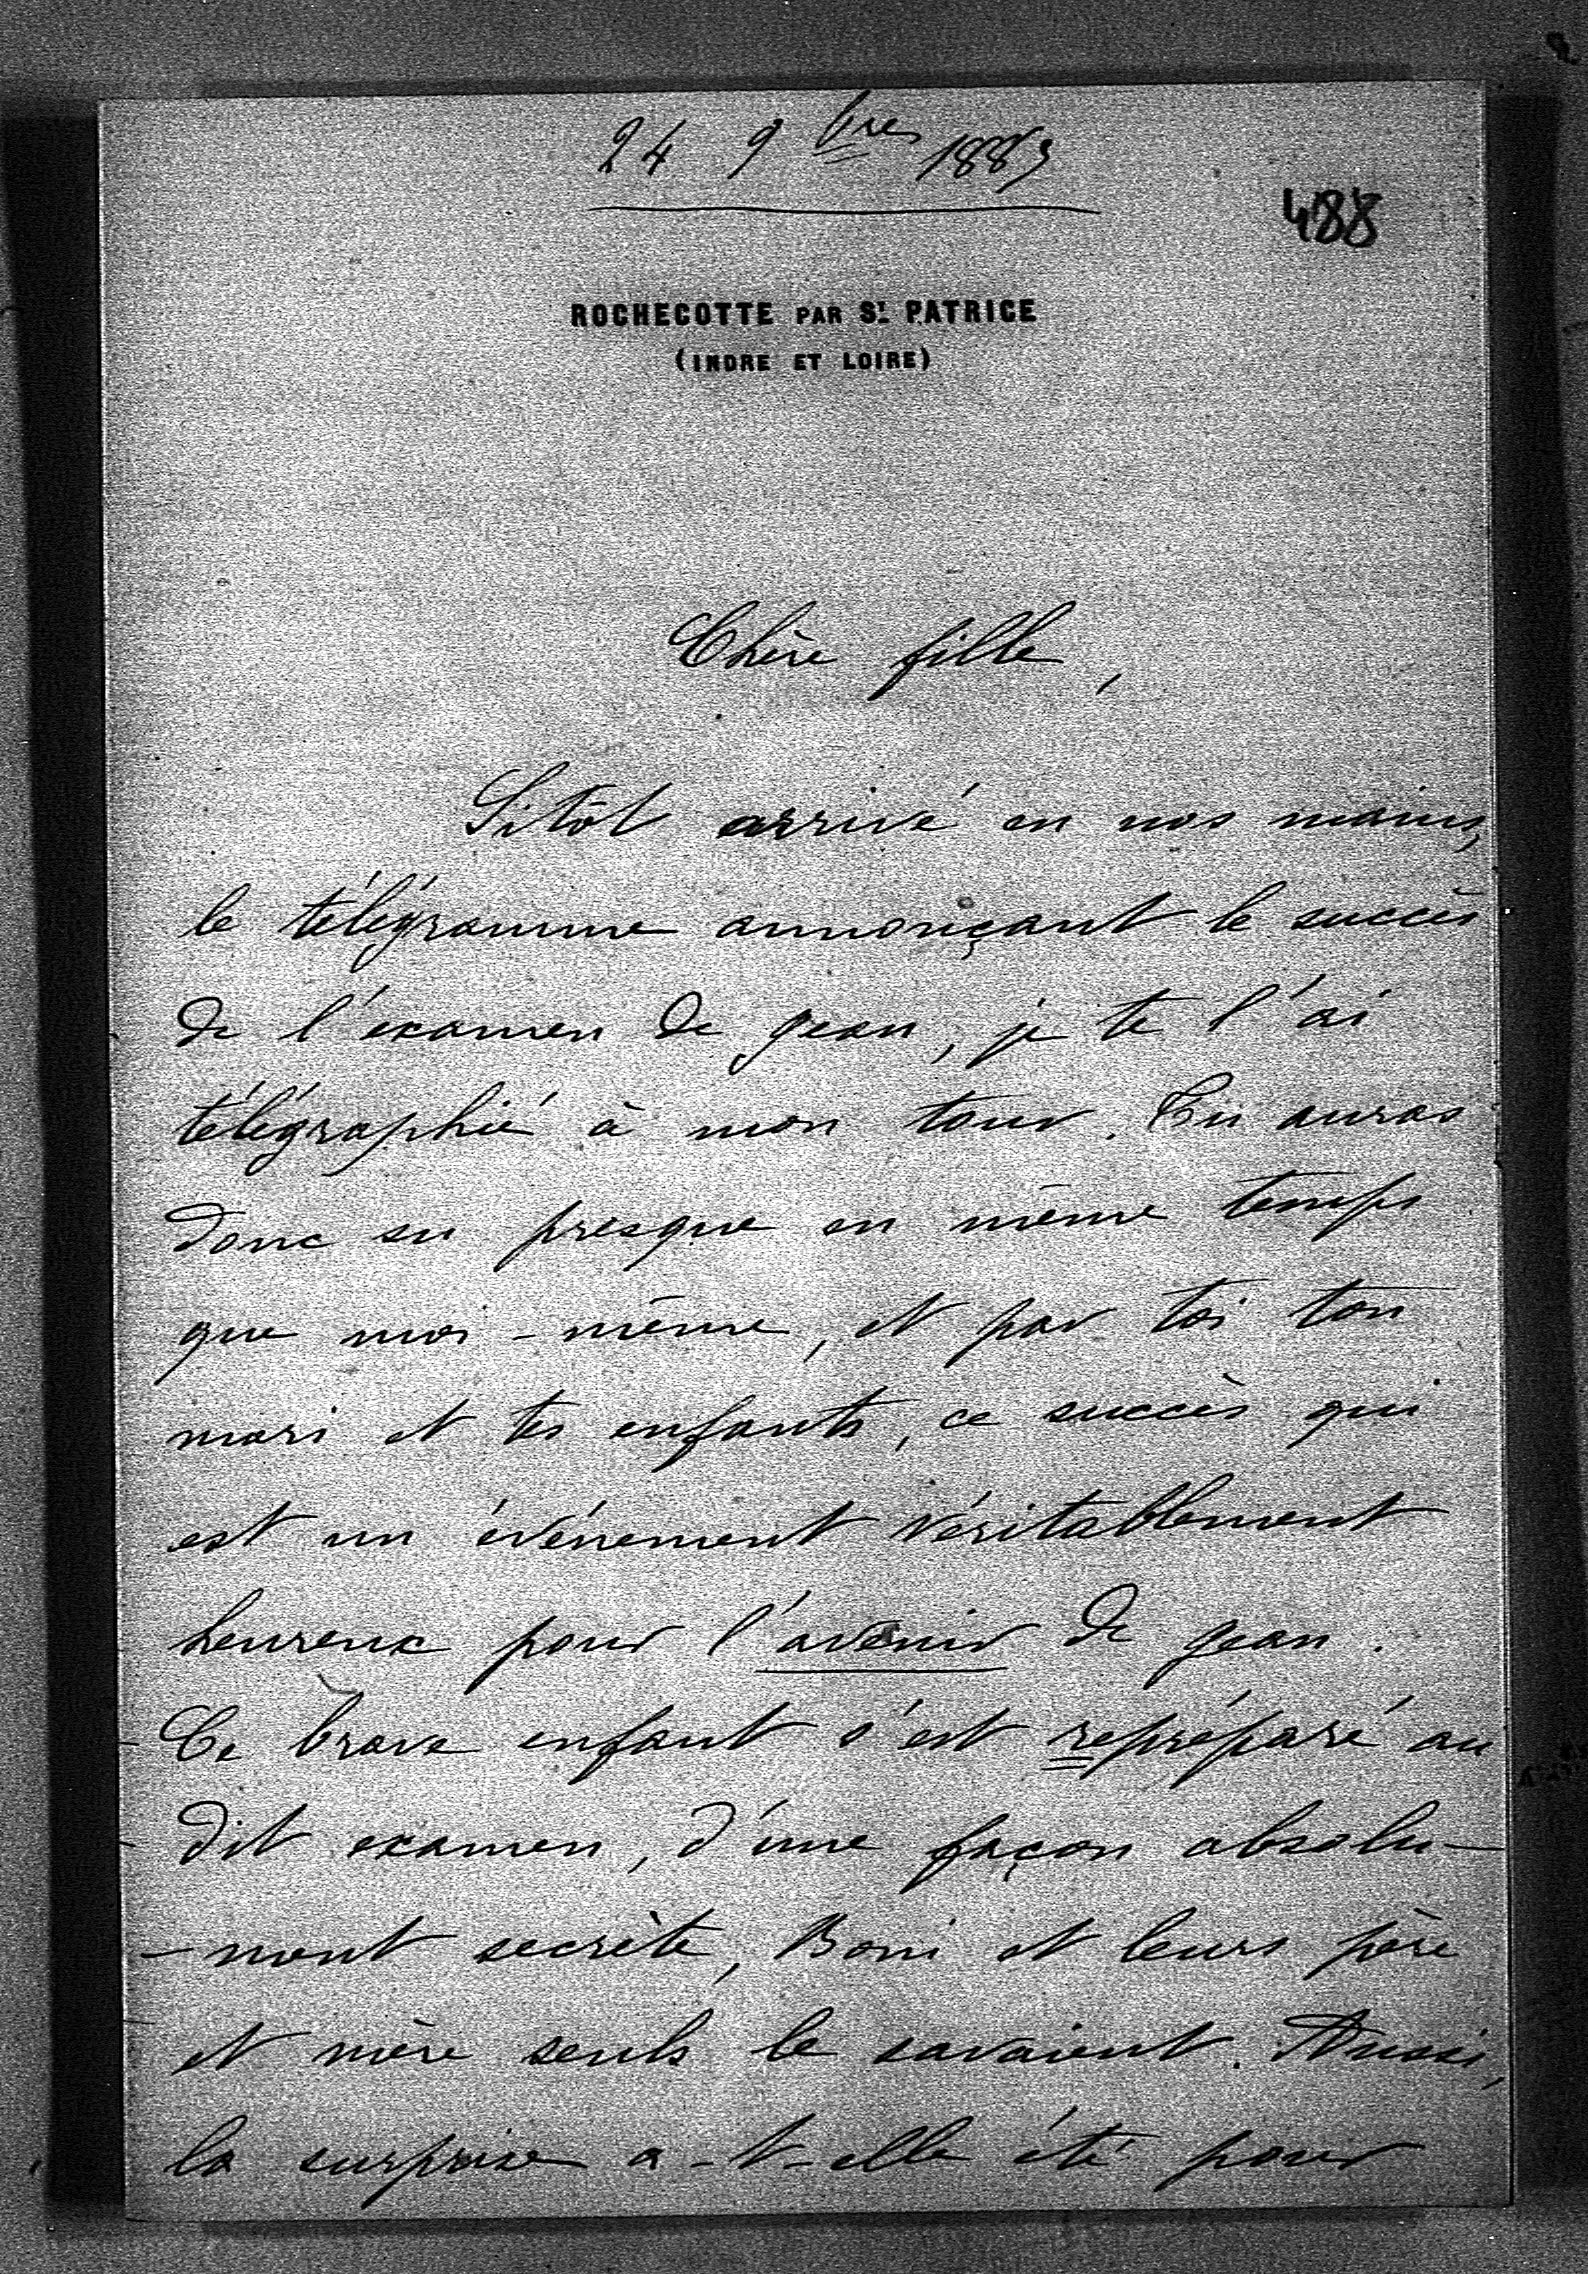 24 9bres 1889
488
ROCHECOTTE PAR ST. PATRICE
(INDRE ET LOIRE)
Chère fille,
Sitôt arrivé en nos mains,
le télégramme annonçant le succès
de l'examen de Jean, je te l'ai
télégraphié à mon tour. Tu auras
donc su presque en même temps
que moi-même, et par toi ton
mari et tes enfants, ce succès qui
est un événement véritablement
heureux pour l'avenir de Jean.
Ce brave enfant s'est repréparé au
dit examen, d'une façon absolu-
-ment secrète, Boni et leurs père
et mère seuls le savaient. Aussi,
la surprise a-t-elle été pour